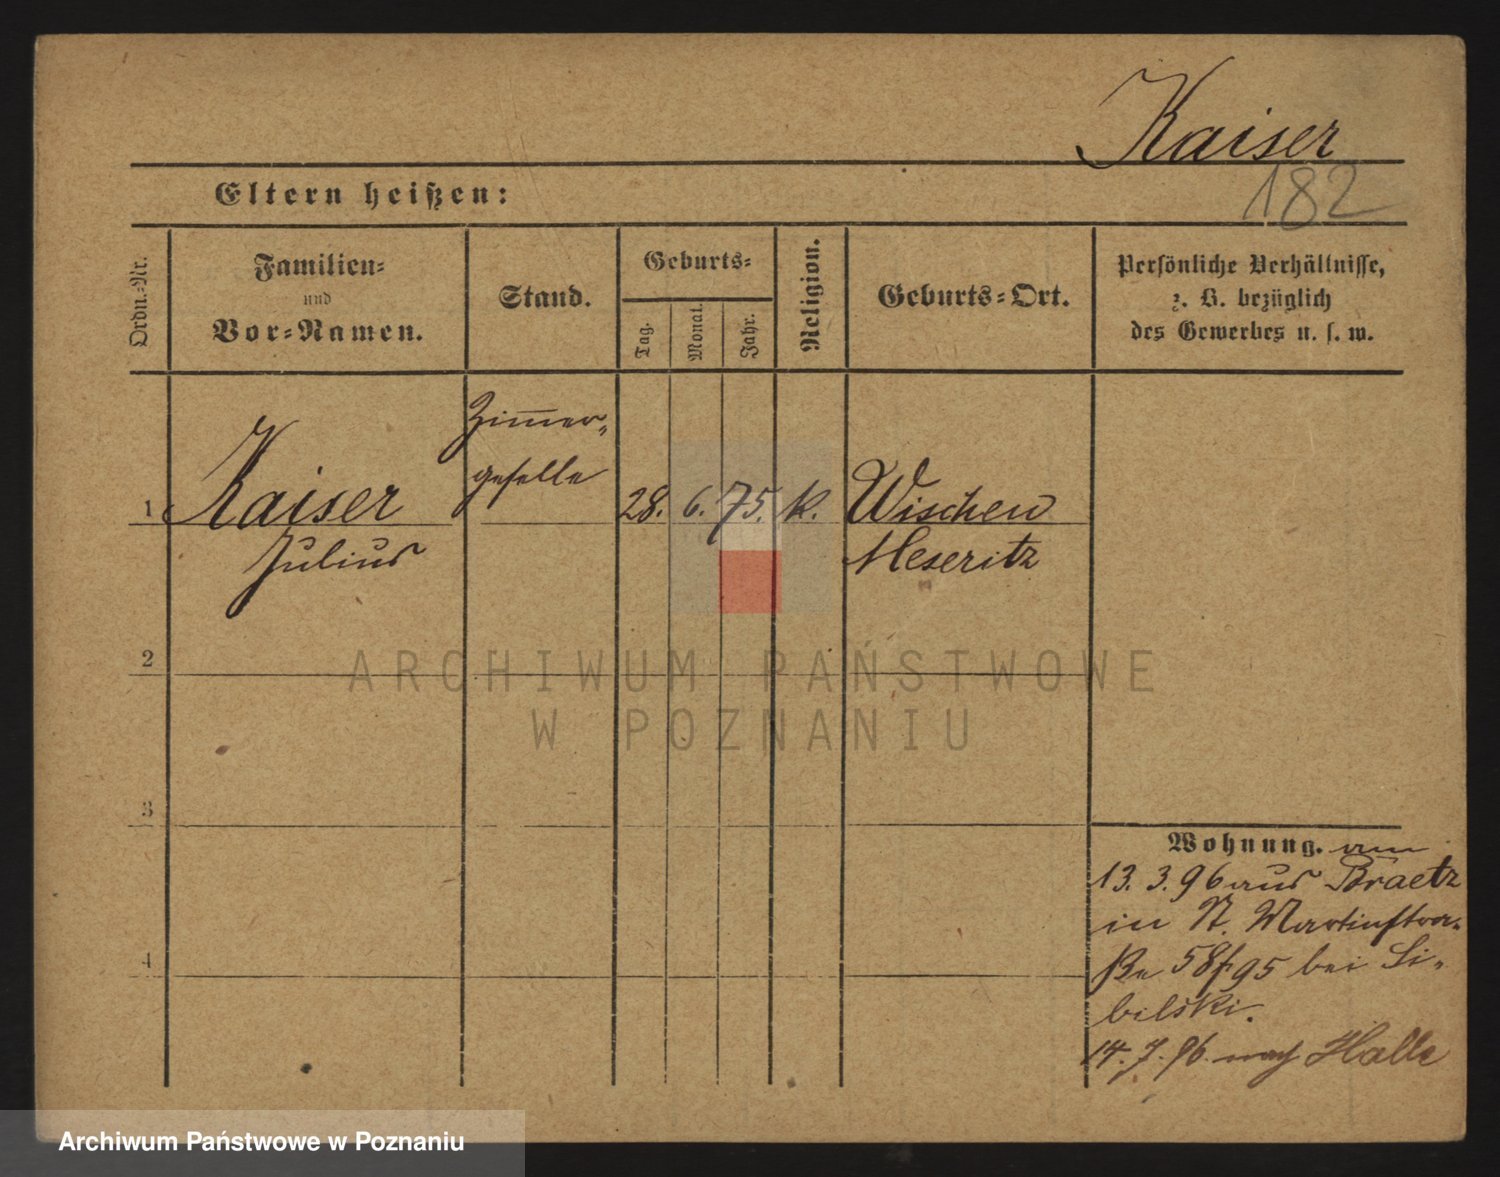 Kaiser
182
Eltern heißen:
Ordn.-Nr.
Familien-
und
Vor-Namen.
Stand.
Geburts-
Tag.
Monat.
Jahr.
Religion.
Geburts-Ort.
Persönliche Verhältnisse,
z. B. bezüglich
des Gewerbes u. s. w.
1
Kaiser
Julius
Zim̅er-
geselle
28.
6.
75.
k.
Wischen
Meseritz
2
3
4
Wohnung. am
13. 3. 96 aus Braetz
in St. Martinstra-
ße 58/95 bei Li-
bilski.
14. 7. 96. nach Halle
ARCHIWUM PAŃSTWOWE
W POZNANIU
Archiwum Państwowe w Poznaniu